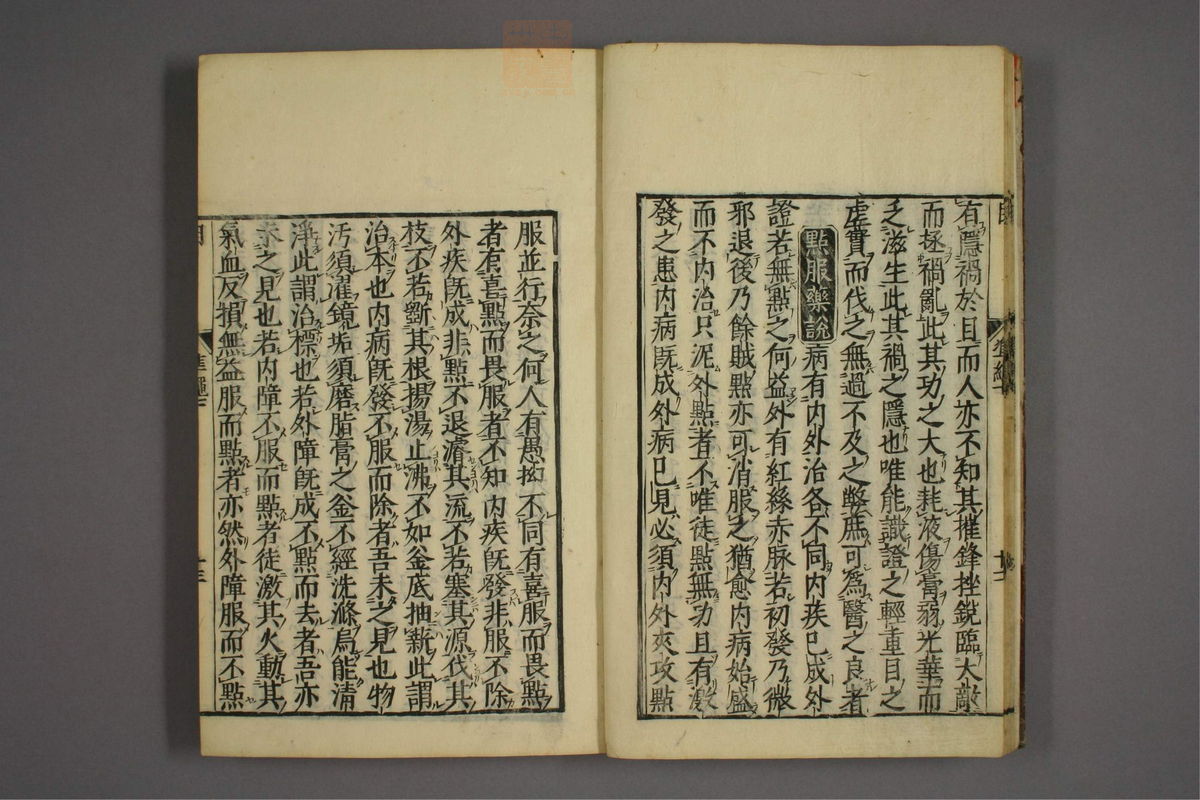 有隱禍於目而人亦不知其摧鋒挫銳臨大敵
而拯禍亂此其功之大也耗液傷膏弱光華而
乏滋生此其禍之隱也唯能識證之輕重目之
虛實而伐之無過不及之弊庶可爲醫之良者
點服藥說
病有內外治各不同內疾已成外
證若無點之何益外有紅絲赤脉若初發乃微
邪退後乃餘賊點亦可消服之猶愈內病始盛
而不內治只泥外點者不唯徒點無功且有激
發之患內病旣成外病已見必須內外夾攻點
服並行奈之何人有愚拗不同有喜服而畏點
者有喜點而畏服者不知內疾旣發非服不除
外疾旣成非點不退濬其流不若塞其源伐其
枝不若斵其根揚湯止沸不如釜底抽薪此謂
治本也內病旣發不服而除者吾未之見也物
汚須濯鏡垢須磨脂膏之釜不經洗滌烏能淸
淨此謂治標也若外障旣成不點而去者吾亦
未之見也若內障不服而點者徒激其火動其
氣血反損無益服而點者亦然外障服而不點